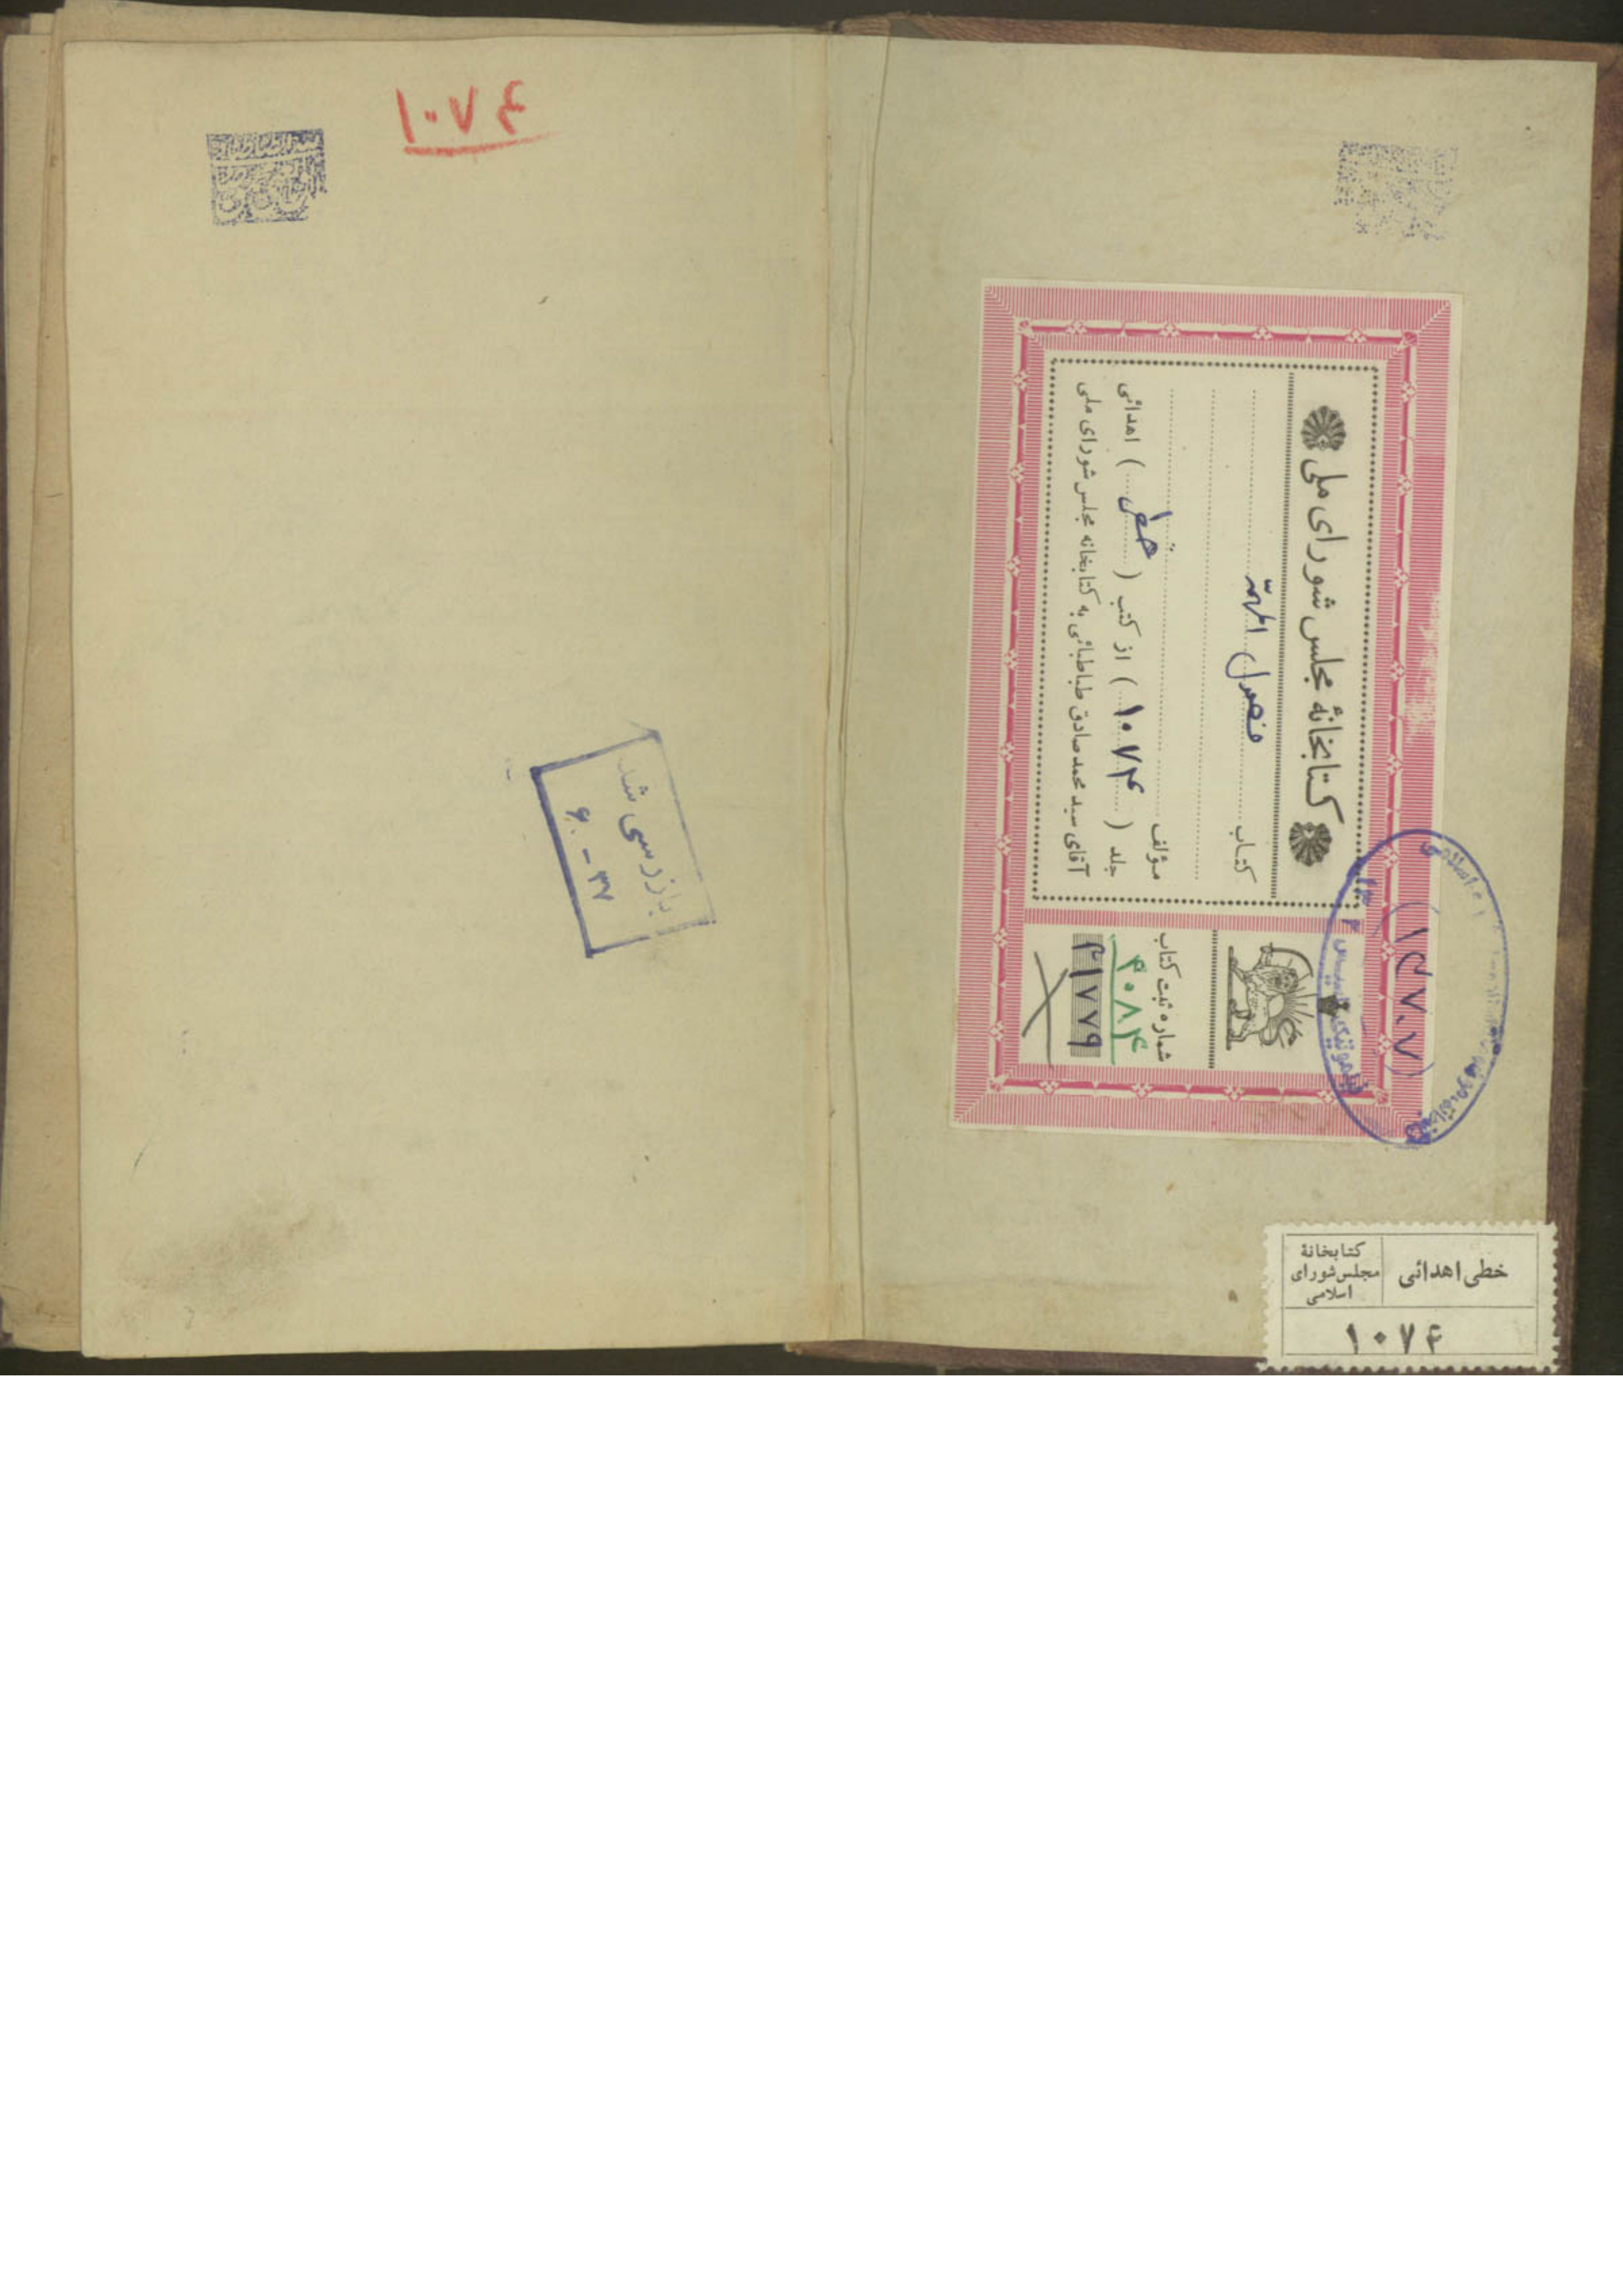 ۱۰۷۴
کتابخانهٔ مجلس شورای ملی
کتاب فصول المهمّه
مؤلف
جلد (۱۰۷۴) از کتب (خطی) اهدائی
آقای سید محمدصادق طباطبائی به کتابخانه مجلس شورای ملی
شماره ثبت کتاب
۴۰۸۴
۴۱۷۷۹
بازرسی شد
۳۷ - ۶
خطی اهدائی
کتابخانهٔ
مجلس شورای
اسلامی
۱۰۷۴